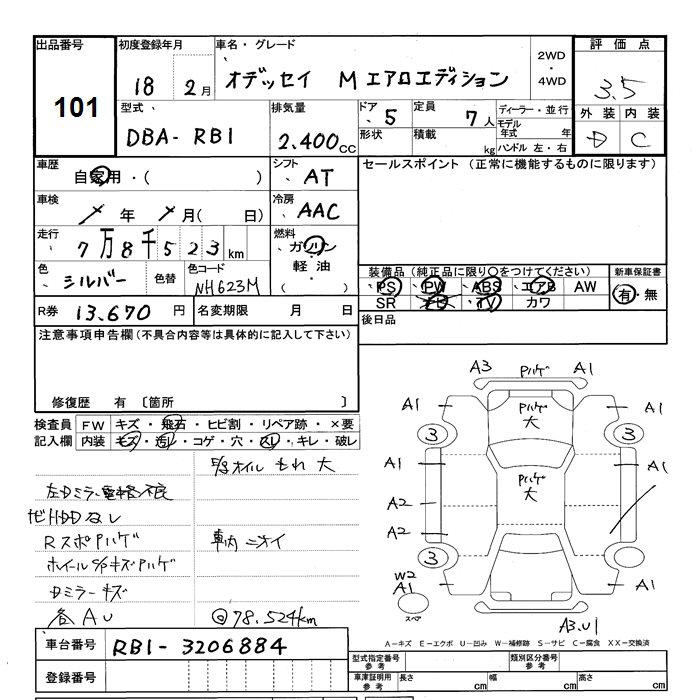 出品番号
101
初度登録年月
18 2月
車名・グレード
オデッセイ M エアロエディション
2WD
・
4WD
評価点
3.5
外装 内装
D C
型式
DBA-RB1
排気量
2.400cc
ドア 5
形状
定員 7人
積載 kg
ディーラー・並行
モデル年式 年
ハンドル 左・右
車歴
自家用・( )
シフト AT
セールスポイント（正常に機能するものに限ります）
車検
年 月( 日)
冷房 AAC
走行
7万8千523km
燃料
ガソリン
軽油
( )
色
シルバー
色替
色コード
NH623M
装備品（純正品に限り○をつけてください）
PS PW ABS エアB AW
SR ナビ TV カワ
新車保証書
有・無
R券 13,670円
名変期限 月 日
後日品
注意事項申告欄（不具合内容等は具体的に記入して下さい）
修復歴 有 〔箇所 〕
検査員記入欄
FW キズ・飛石・ヒビ割・リペア跡・×要
内装 キズ・汚レ・コゲ・穴・スレ・キレ・破レ
P/Sオイルもれ 大
左Dミラー電格不良
ナビHDDなし
Rスポハゲ
車内ニオイ
ホイールC/Pキズハゲ
Dミラーキズ
各AU
◎78.524km
A3 Pハゲ A1
A1 Pハゲ大 A1
3 3
A1 Pハゲ大 A1
A2
A2
3
W2
A1 A1
スペア
A3.U1
A－キズ E－エクボ U－凹み W－補修跡 S－サビ C－腐食 XX－交換済
車台番号
RB1-3206884
登録番号
型式指定番号 参考
類別区分番号 参考
車庫証明用 参考
長さ cm
幅 cm
高さ cm